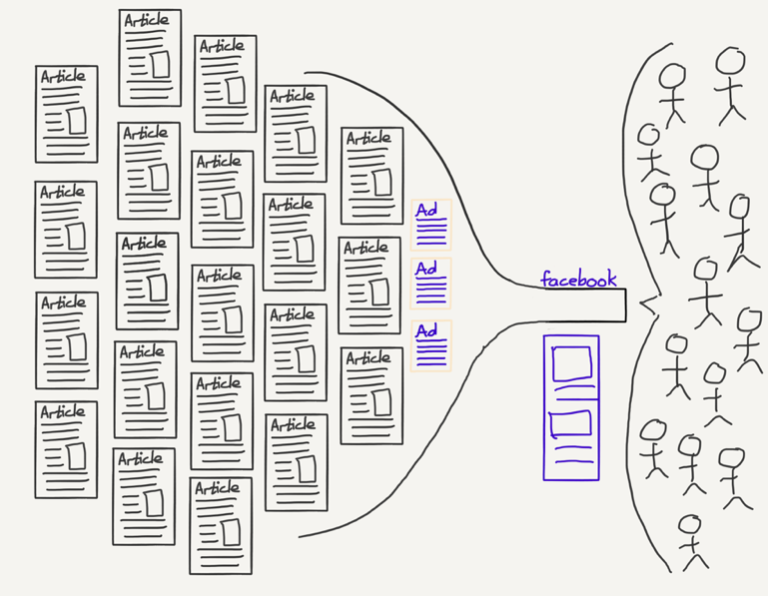 Article
Article
Article
Article
Article
Article
Article
Article
Article
Ad
Article
Article
Ad
Article
facebook
Article
Article
Ad
Article
Article
Article
Article
Article
Article
Article